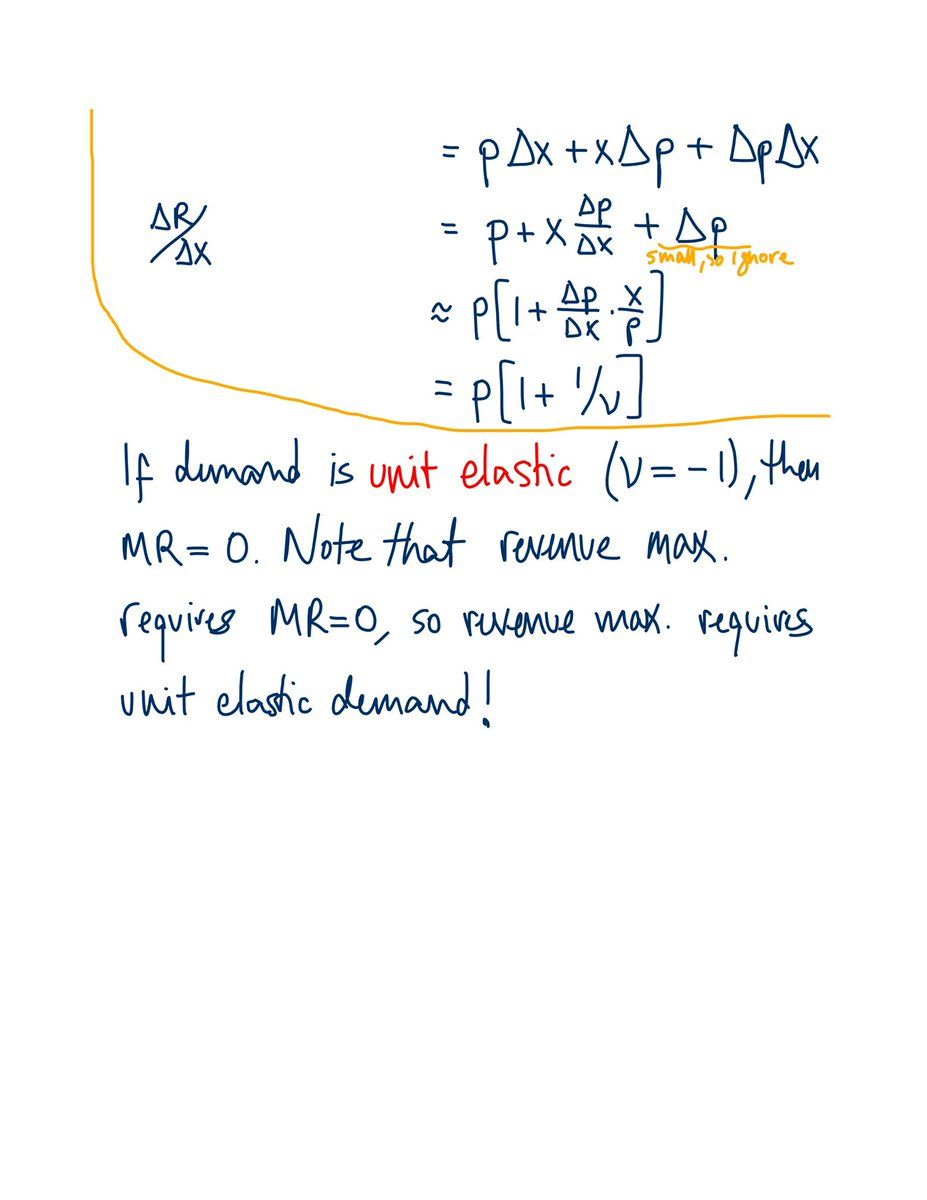 = p Δx + x Δp + Δp Δx
ΔR/Δx = p + x Δp/Δx + Δp
small, so ignore
≈ p[1 + Δp/Δx · x/p]
= p[1 + 1/ν]
If demand is unit elastic (ν = -1), then
MR = 0. Note that revenue max.
requires MR=0, so revenue max. requires
unit elastic demand!